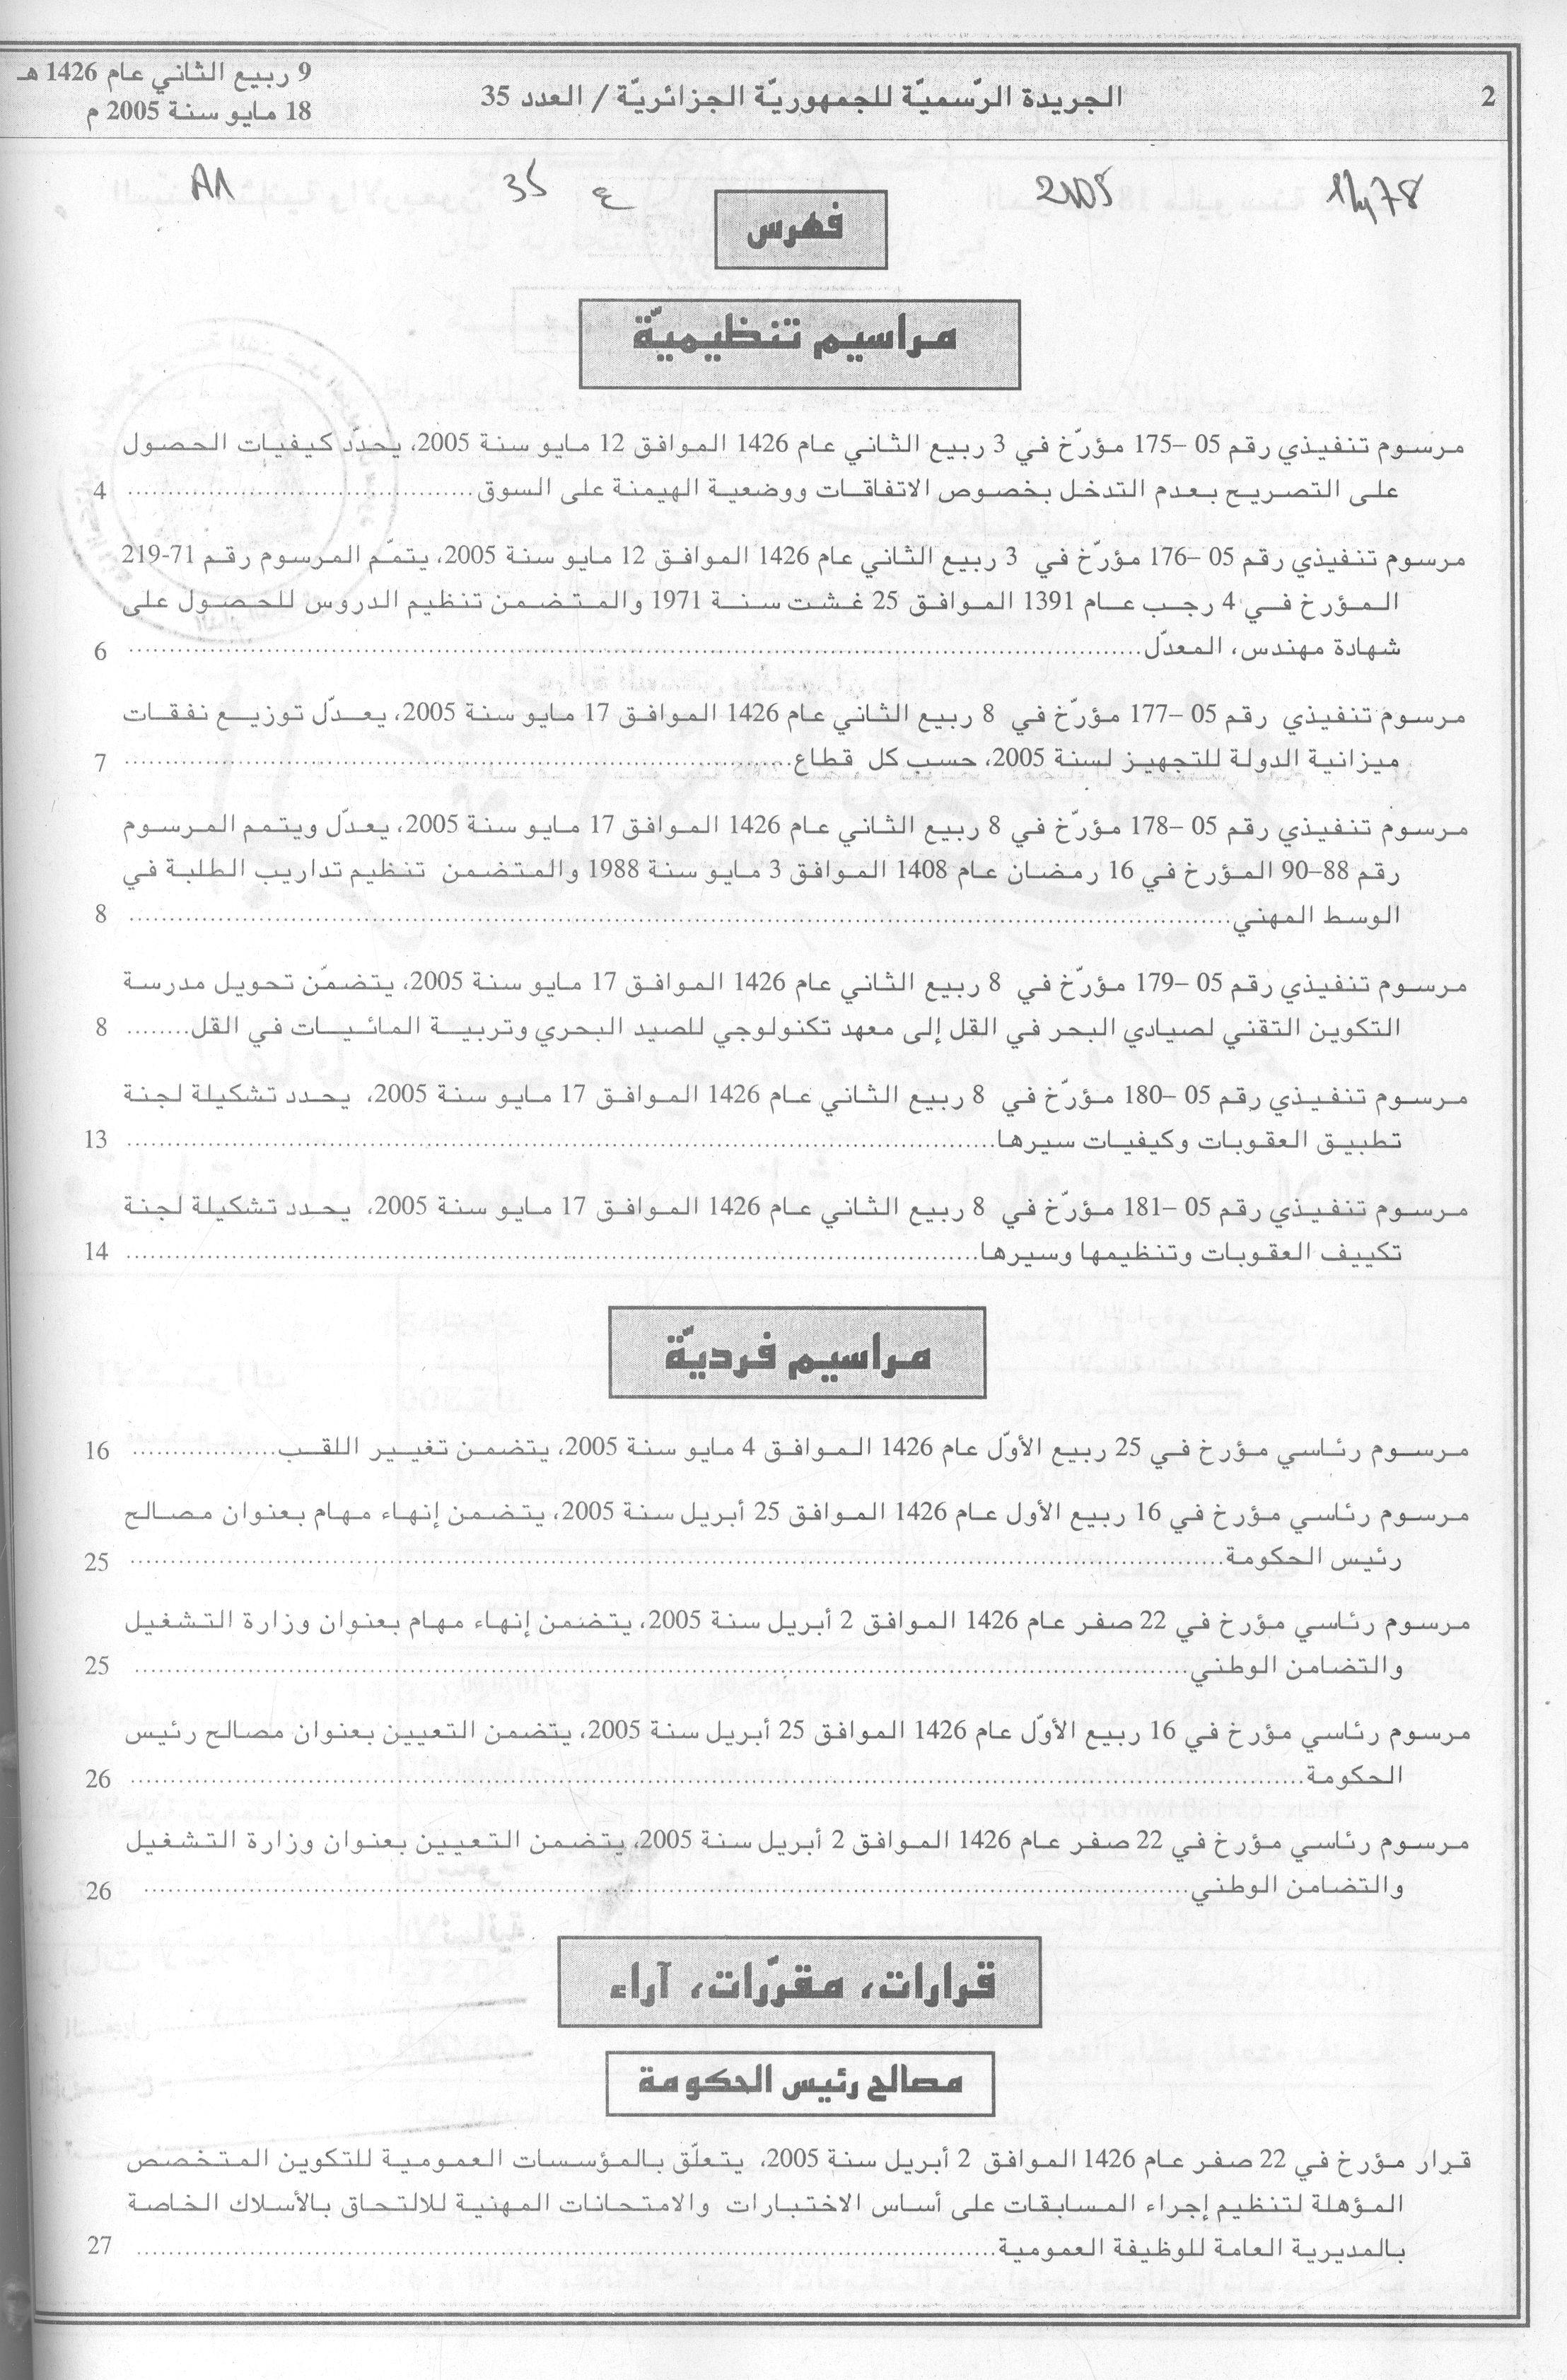 2
الجريدة الرّسميّة للجمهوريّة الجزائريّة / العدد 35
9 ربيع الثاني عام 1426 هـ
18 مايو سنة 2005 م
2005
35 ع
A1
فهرس
مراسيم تنظيميّة
مرسوم تنفيذي رقم 05 –175 مؤرّخ في 3 ربيع الثاني عام 1426 الموافق 12 مايو سنة 2005، يحدّد كيفيات الحصول
على التصريح بعدم التدخل بخصوص الاتفاقات ووضعية الهيمنة على السوق.......... 4
مرسوم تنفيذي رقم 05 –176 مؤرّخ في 3 ربيع الثاني عام 1426 الموافق 12 مايو سنة 2005، يتمّم المرسوم رقم 71-219
المؤرخ في 4 رجب عام 1391 الموافق 25 غشت سنة 1971 والمتضمن تنظيم الدروس للحصول على
شهادة مهندس، المعدّل.......... 6
مرسوم تنفيذي رقم 05 –177 مؤرّخ في 8 ربيع الثاني عام 1426 الموافق 17 مايو سنة 2005، يعدّل توزيع نفقات
ميزانية الدولة للتجهيز لسنة 2005، حسب كل قطاع.......... 7
مرسوم تنفيذي رقم 05 –178 مؤرّخ في 8 ربيع الثاني عام 1426 الموافق 17 مايو سنة 2005، يعدّل ويتمم المرسوم
رقم 88–90 المؤرخ في 16 رمضان عام 1408 الموافق 3 مايو سنة 1988 والمتضمن تنظيم تداريب الطلبة في
الوسط المهني.......... 8
مرسوم تنفيذي رقم 05 –179 مؤرّخ في 8 ربيع الثاني عام 1426 الموافق 17 مايو سنة 2005، يتضمّن تحويل مدرسة
التكوين التقني لصيادي البحر في القل إلى معهد تكنولوجي للصيد البحري وتربية المائيات في القل........ 8
مرسوم تنفيذي رقم 05 –180 مؤرّخ في 8 ربيع الثاني عام 1426 الموافق 17 مايو سنة 2005، يحدد تشكيلة لجنة
تطبيق العقوبات وكيفيات سيرها.......... 13
مرسوم تنفيذي رقم 05 –181 مؤرّخ في 8 ربيع الثاني عام 1426 الموافق 17 مايو سنة 2005، يحدد تشكيلة لجنة
تكييف العقوبات وتنظيمها وسيرها.......... 14
مراسيم فرديّة
مرسوم رئاسي مؤرخ في 25 ربيع الأوّل عام 1426 الموافق 4 مايو سنة 2005، يتضمن تغيير اللقب.......... 16
مرسوم رئاسي مؤرخ في 16 ربيع الأول عام 1426 الموافق 25 أبريل سنة 2005، يتضمن إنهاء مهام بعنوان مصالح
رئيس الحكومة.......... 25
مرسوم رئاسي مؤرخ في 22 صفر عام 1426 الموافق 2 أبريل سنة 2005، يتضمن إنهاء مهام بعنوان وزارة التشغيل
والتضامن الوطني.......... 25
مرسوم رئاسي مؤرخ في 16 ربيع الأوّل عام 1426 الموافق 25 أبريل سنة 2005، يتضمن التعيين بعنوان مصالح رئيس
الحكومة.......... 26
مرسوم رئاسي مؤرخ في 22 صفر عام 1426 الموافق 2 أبريل سنة 2005، يتضمن التعيين بعنوان وزارة التشغيل
والتضامن الوطني.......... 26
قرارات، مقرّرات، آراء
مصالح رئيس الحكومة
قرار مؤرخ في 22 صفر عام 1426 الموافق 2 أبريل سنة 2005، يتعلّق بالمؤسسات العمومية للتكوين المتخصص
المؤهلة لتنظيم إجراء المسابقات على أساس الاختبارات والامتحانات المهنية للالتحاق بالأسلاك الخاصة
بالمديرية العامة للوظيفة العمومية.......... 27